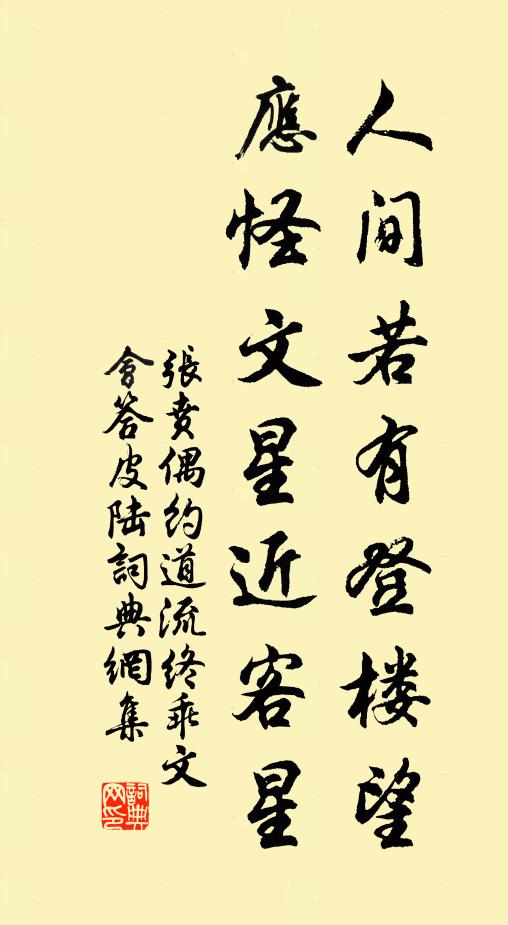 人间若有登楼望
應怪文星近客星
張賁偶約道流終乖文
會答皮陆詞典網集
詞典网印